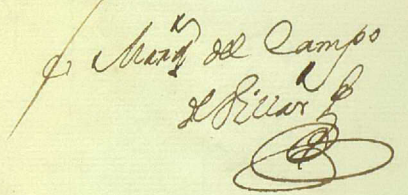 Marqs del Campo
de Villar